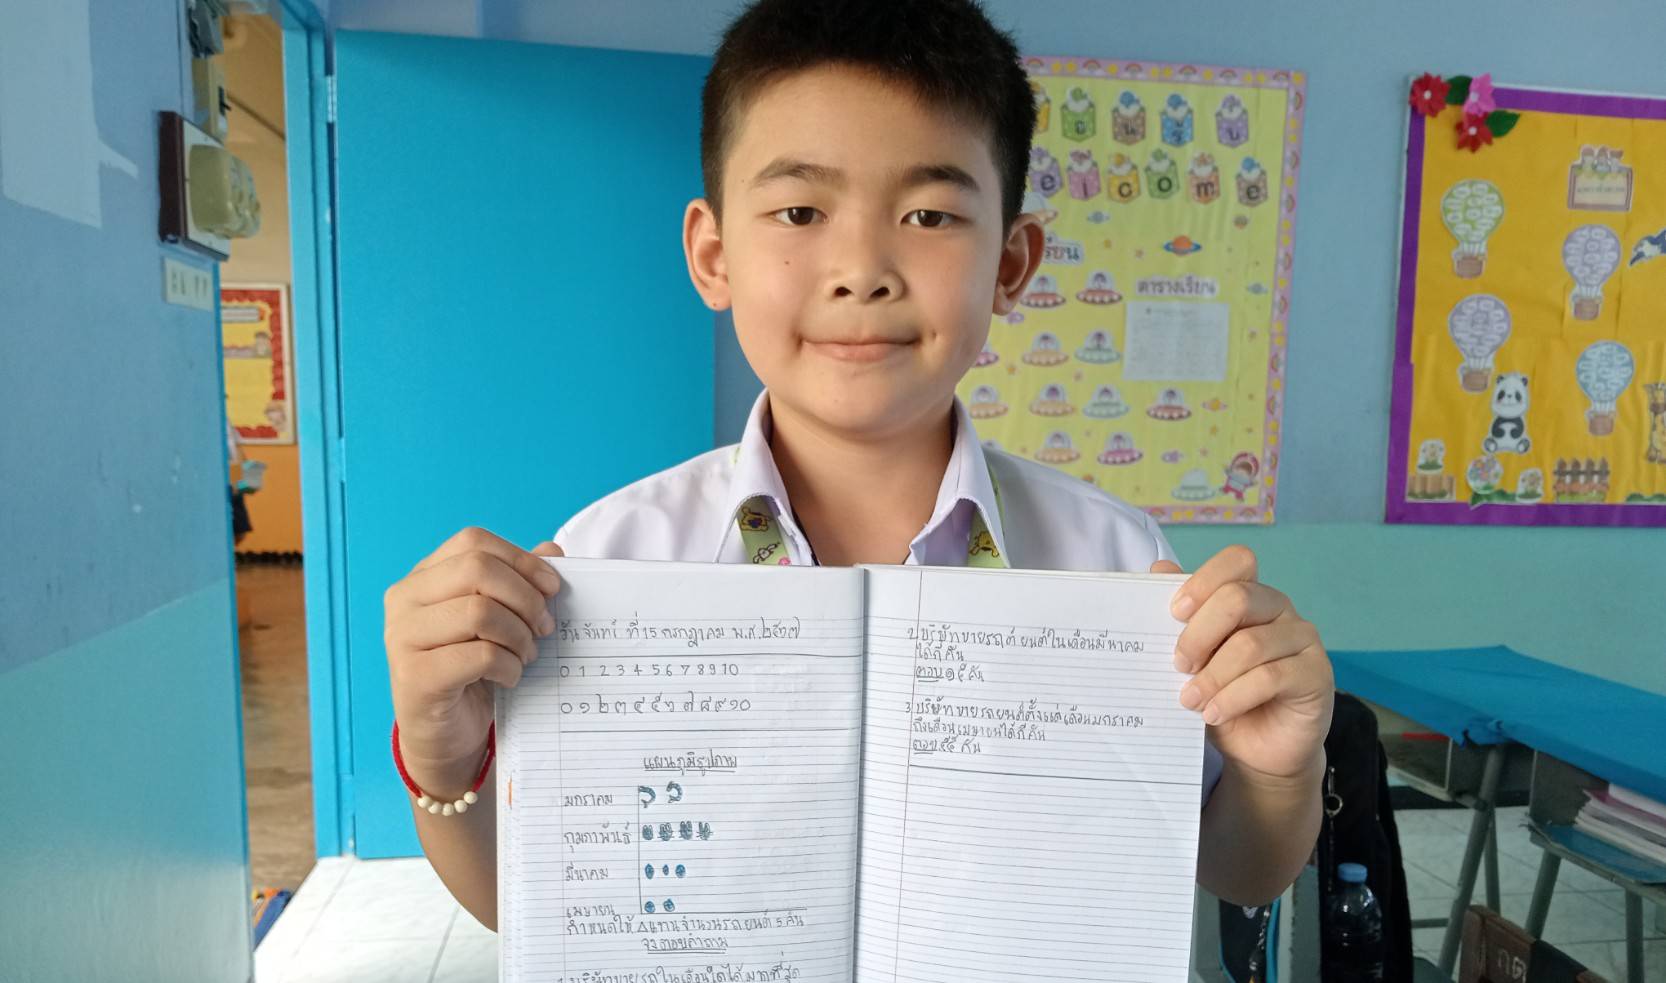 วัน จันทร์ ที่ 15 กรกฎาคม พ.ศ.๒๕๖๗
0 1 2 3 4 5 6 7 8 9 10
๐ ๑ ๒ ๓ ๔ ๕ ๖ ๗ ๘ ๙ ๑๐
แผนภูมิรูปภาพ
มกราคม
กุมภาพันธ์
มีนาคม
เมษายน
กำหนดให้ △ แทนจำนวนรถยนต์ 5 คัน
จงตอบคำถาม
1. บริษัทขายรถในเดือนใดได้มากที่สุด
2. บริษัทขายรถยนต์ในเดือนมีนาคม
ได้กี่คัน
ตอบ ๑๕ คัน
3. บริษัทขายรถยนต์ตั้งแต่เดือนมกราคม
ถึงเดือนเมษายนได้กี่คัน
ตอบ ๕๕ คัน
elcome
เรียน
ตารางเรียน